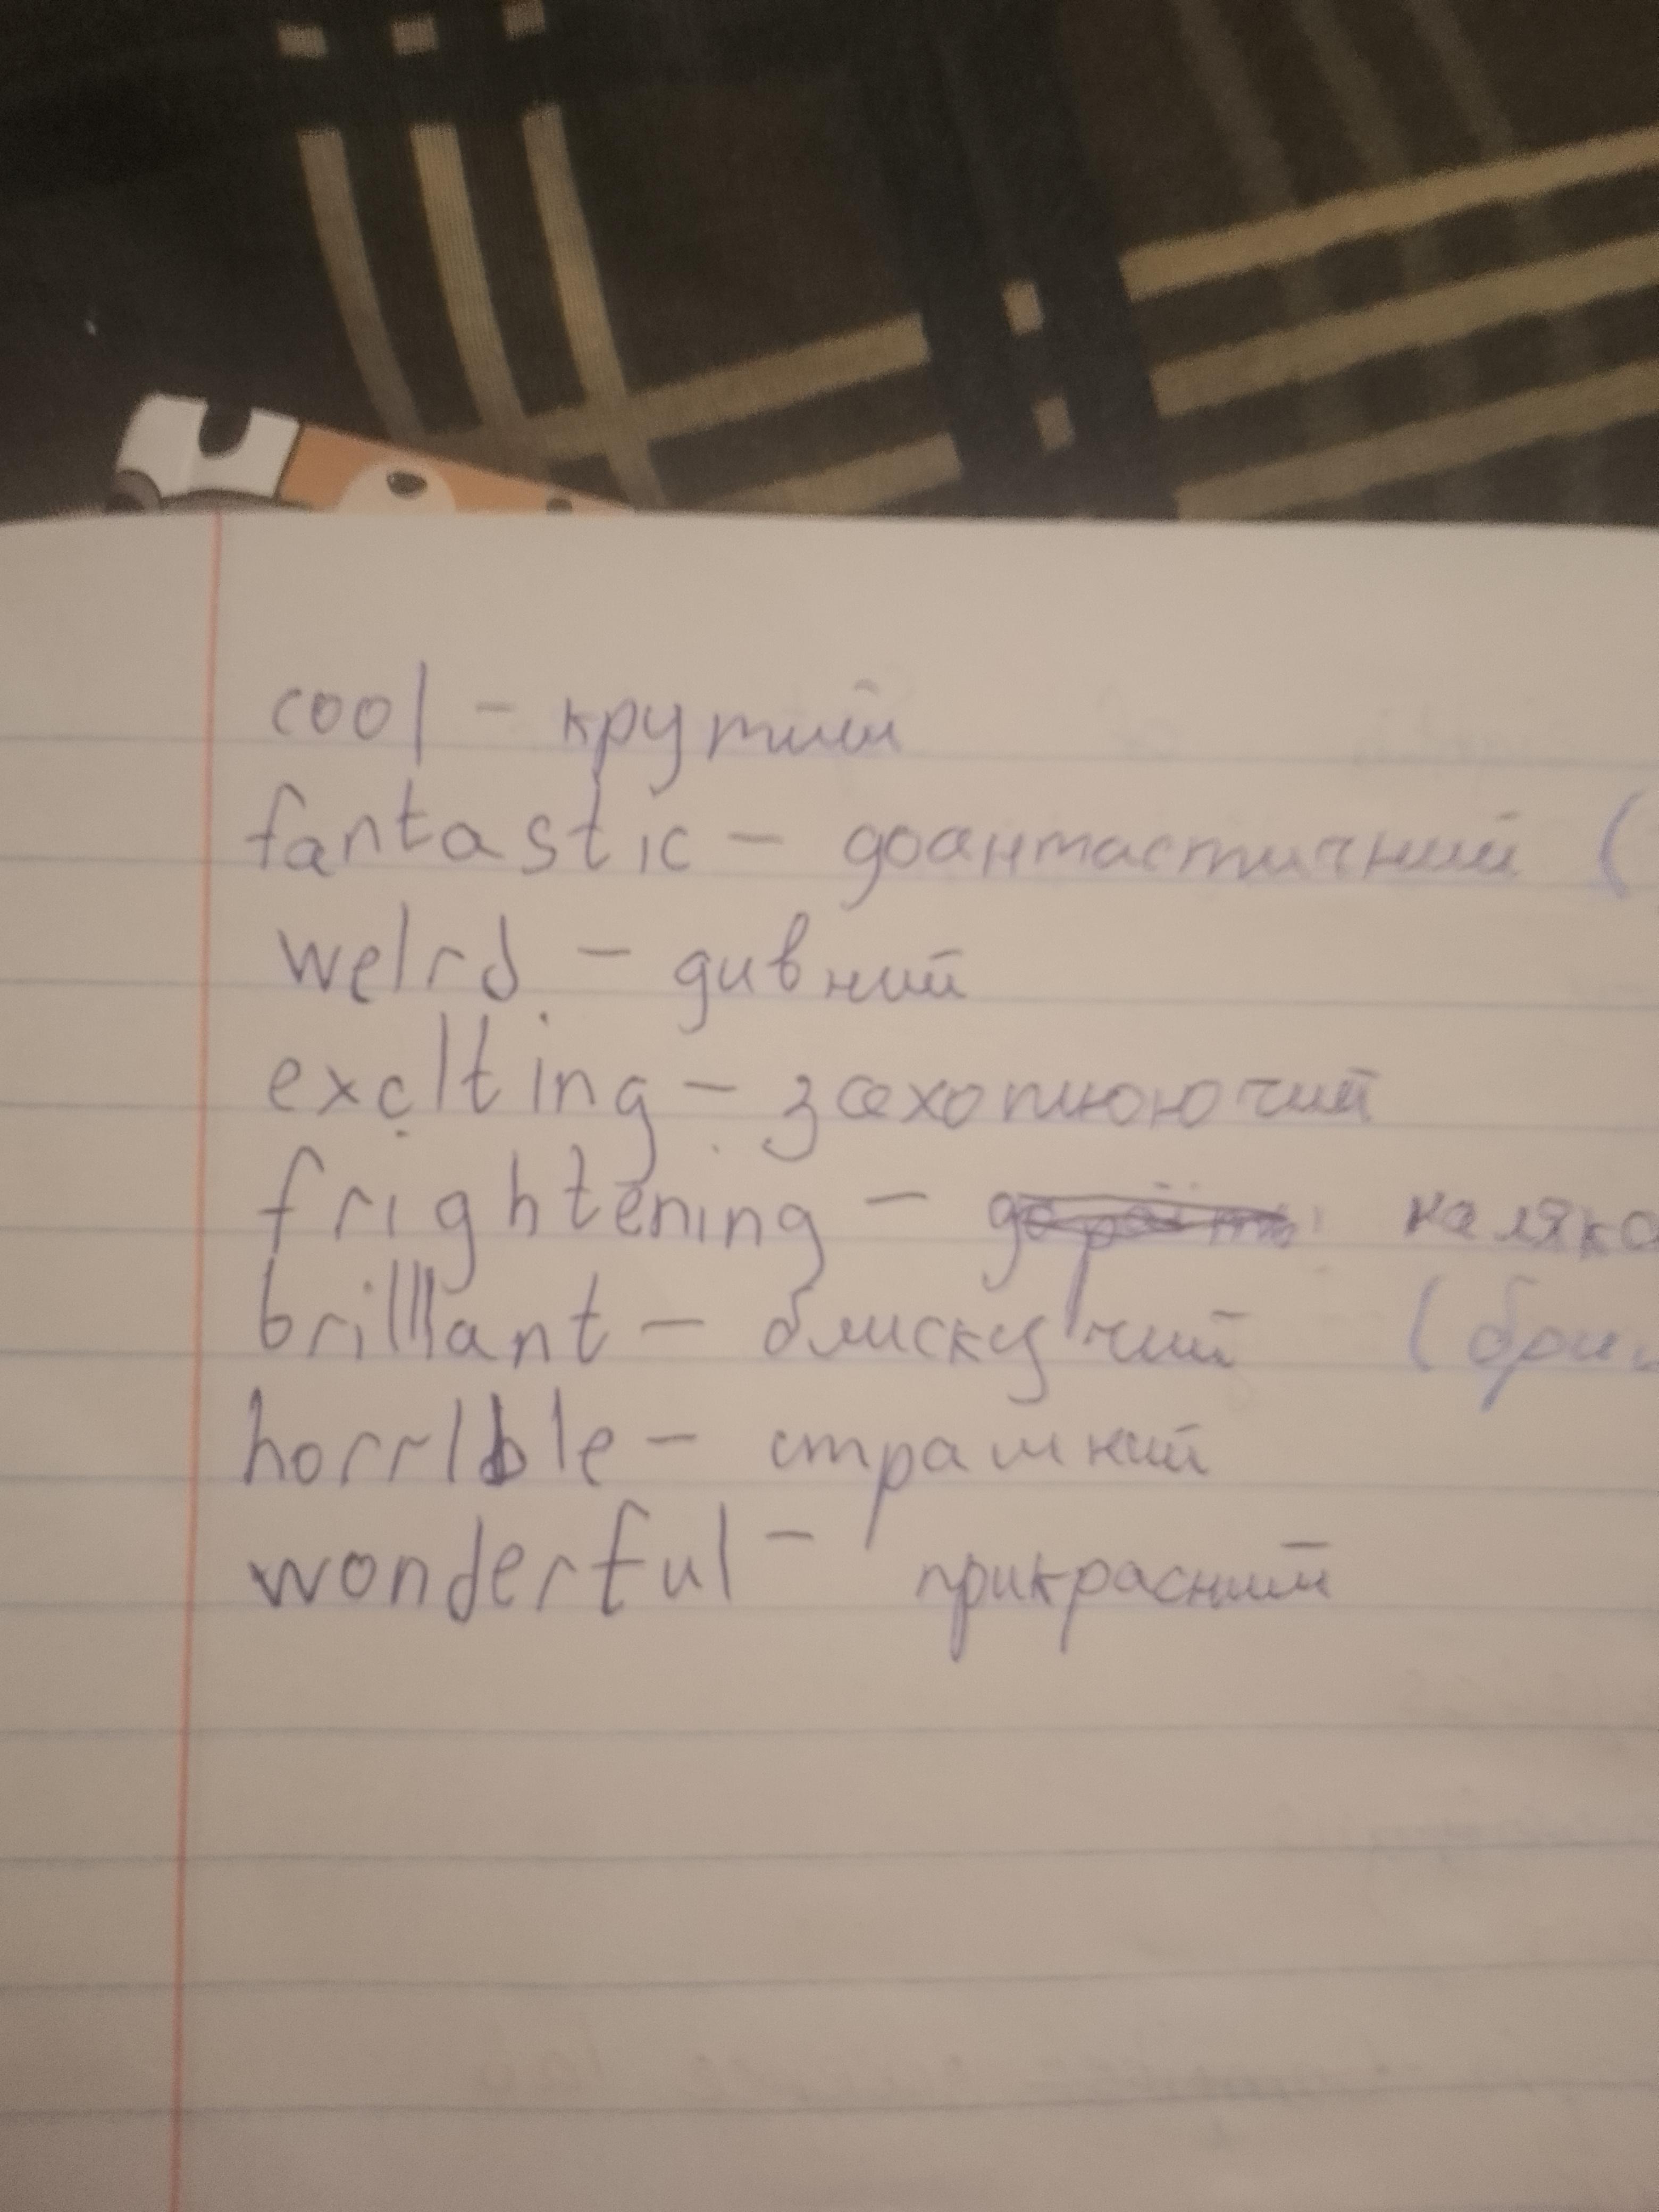 cool - крутий
fantastic - фантастичний (
weird - дивний
exciting - захоплюючий
frightening - наляка
brilliant - блискучий (бри
horrible - страшний
wonderful - прикрасний